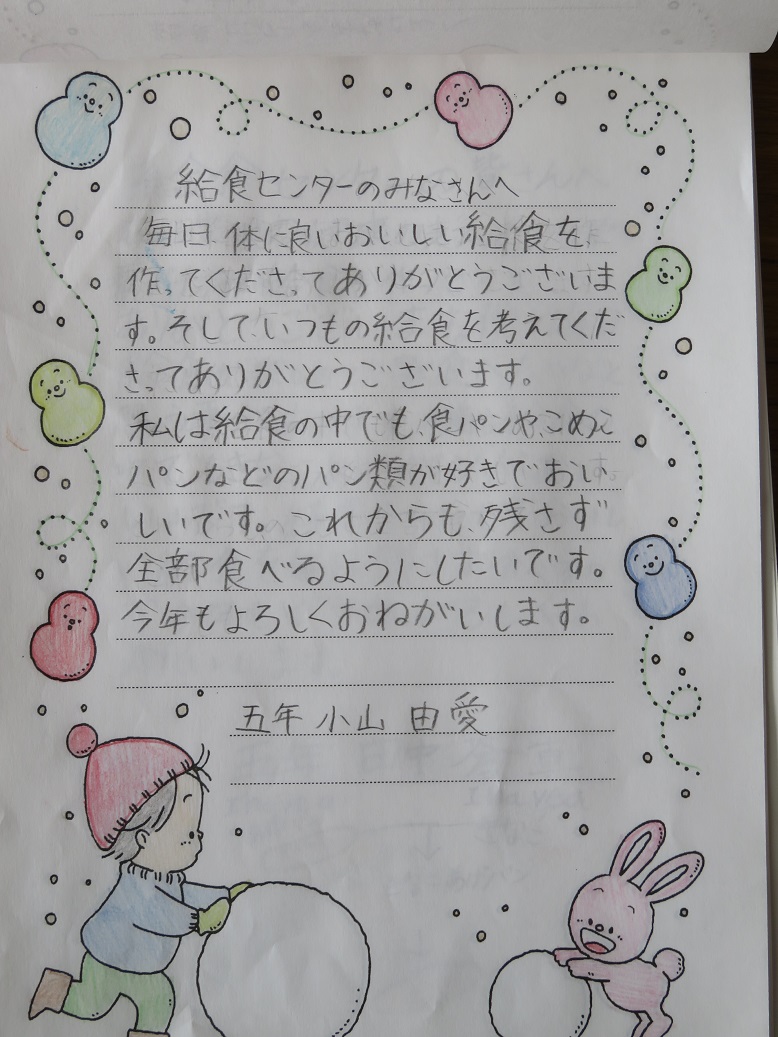 給食センターのみなさんへ
毎日、体に良いおいしい給食を、
作ってくださってありがとうございま
す。そして、いつもの給食を考えてくだ
さってありがとうございます。
私は給食の中でも、食パンや、こめこ
パンなどのパン類が好きでおい
しいです。これからも、残さず
全部食べるようにしたいです。
今年もよろしくおねがいします。
五年 小山 由愛